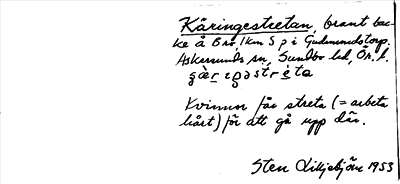 Käringestretan, brant bac-
ke å Bro 1 km S p i Gudmundstorp.
Askersunds sn, Sundbo hd, Ör. l.
Kvinnor får streta (= arbeta
hårt) för att gå upp där.
Sten Liljebjörn 1953